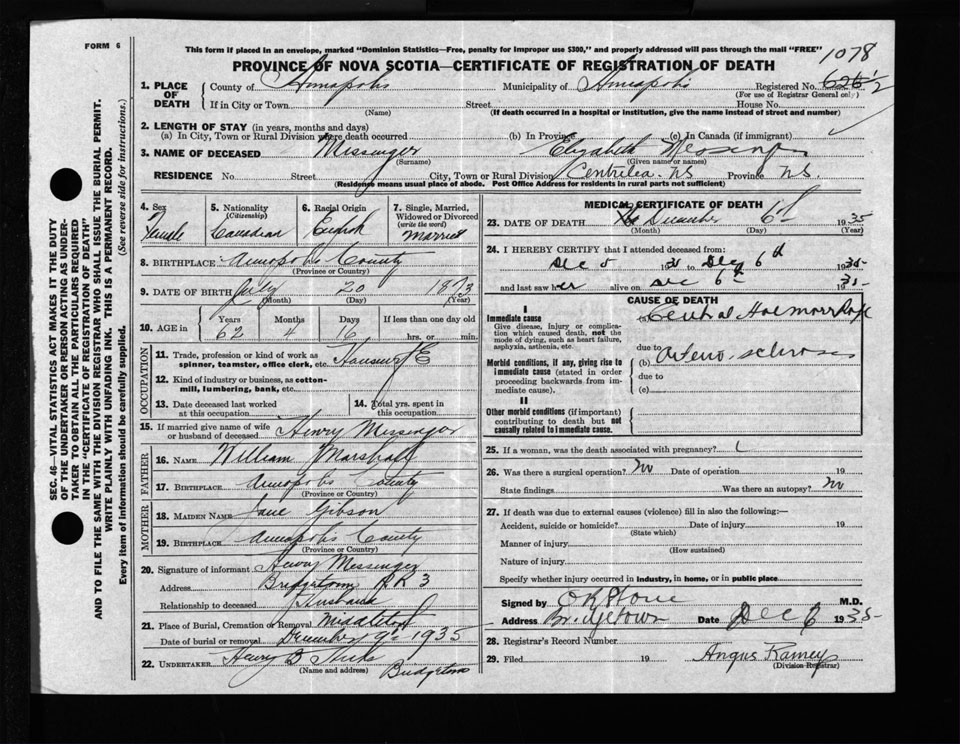 FORM 6
This form if placed in an envelope, marked "Dominion Statistics—Free, penalty for improper use $300," and properly addressed will pass through the mail "FREE"
1078
PROVINCE OF NOVA SCOTIA—CERTIFICATE OF REGISTRATION OF DEATH
1. PLACE OF DEATH County of Annapolis Municipality of Annapolis Registered No.
(For use of Registrar General only)
If in City or Town Street House No.
(Name) (If death occurred in a hospital or institution, give the name instead of street and number)
2. LENGTH OF STAY (in years, months and days)
(a) In City, Town or Rural Division where death occurred (b) In Province (c) In Canada (if immigrant)
3. NAME OF DECEASED Messinger Elizabeth Messinger
(Surname) (Given name or names)
RESIDENCE No. Street City, Town or Rural Division Centrelea NS Province N.S.
(Residence means usual place of abode. Post Office Address for residents in rural parts not sufficient)
4. Sex Female
5. Nationality (Citizenship) Canadian
6. Racial Origin English
7. Single, Married, Widowed or Divorced (write the word) Married
8. BIRTHPLACE Annapolis County
(Province or Country)
9. DATE OF BIRTH July 20 1873
(Month) (Day) (Year)
10. AGE in Years Months Days If less than one day old
62 4 16 hrs. or min.
OCCUPATION
11. Trade, profession or kind of work as spinner, teamster, office clerk, etc.
12. Kind of industry or business, as cotton-mill, lumbering, bank, etc.
13. Date deceased last worked at this occupation
14. Total yrs. spent in this occupation
15. If married give name of wife or husband of deceased Henry Messenger
FATHER
16. NAME William Marshall
17. BIRTHPLACE Annapolis County
(Province or Country)
MOTHER
18. MAIDEN NAME Jane Gibson
19. BIRTHPLACE Annapolis County
(Province or Country)
20. Signature of informant Henry Messenger
Address Bridgetown RR 3
Relationship to deceased Husband
21. Place of Burial, Cremation or Removal Middleton
Date of burial or removal December 9th 1935
22. UNDERTAKER Henry B Hicks
(Name and address) Bridgetown
MEDICAL CERTIFICATE OF DEATH
23. DATE OF DEATH December 6th 1935
(Month) (Day) (Year)
24. I HEREBY CERTIFY that I attended deceased from:
Dec 5 1935 to Dec 6th 1935
and last saw her alive on Dec 6th 1935
CAUSE OF DEATH
I
Immediate cause
Give disease, injury or complication which caused death, not the mode of dying, such as heart failure, asphyxia, asthenia, etc.
(a) Cerebral Haemorrhage
due to
Morbid conditions, if any, giving rise to immediate cause (stated in order proceeding backwards from immediate cause).
(b) Arterio-sclerosis
due to
(c)
II
Other morbid conditions (if important) contributing to death but not causally related to immediate cause.
25. If a woman, was the death associated with pregnancy?
26. Was there a surgical operation? No Date of operation 19
State findings Was there an autopsy? No
27. If death was due to external causes (violence) fill in also the following:—
Accident, suicide or homicide? Date of injury 19
(State which)
Manner of injury
(How sustained)
Nature of injury
Specify whether injury occurred in industry, in home, or in public place
Signed by M.D.
Address Bridgetown Date Dec 6 1935
28. Registrar's Record Number
29. Filed 19 Angus Ramey
(Division Registrar)
SEC. 46—VITAL STATISTICS ACT MAKES IT THE DUTY
OF THE UNDERTAKER OR PERSON ACTING AS UNDER-
TAKER TO OBTAIN ALL THE PARTICULARS REQUIRED
IN THE "CERTIFICATE OF REGISTRATION OF DEATH" AND TO FILE THE SAME WITH THE DIVISION REGISTRAR WHO SHALL ISSUE THE BURIAL PERMIT.
WRITE PLAINLY WITH UNFADING INK. THIS IS A PERMANENT RECORD.
Every item of information should be carefully supplied. (See reverse side for instructions.)